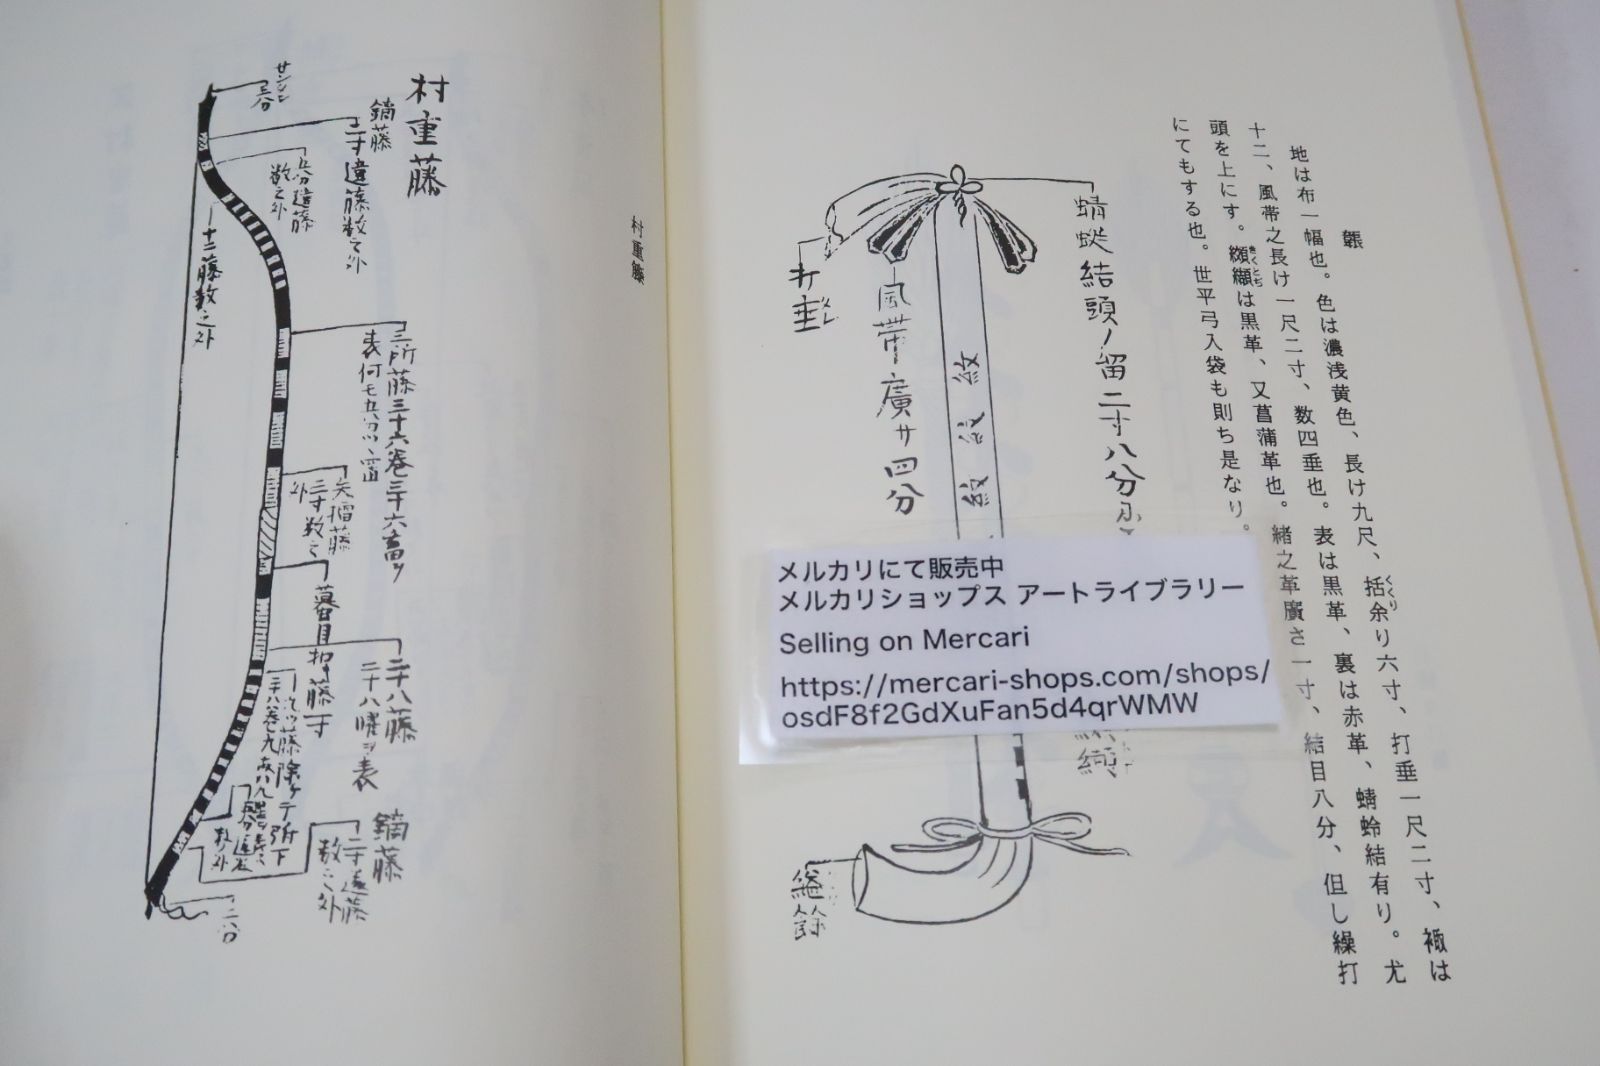 韔
地は布一幅也。色は濃浅黄色、長け九尺、括余り六寸、打垂一尺二寸、襧は
くくり
十二、風帯之長け一尺二寸、数四垂也。表は黒革、裏は赤革、蜻蛉結有り。尤
頭を上にす。纐纈は黒革、又菖蒲革也。緒之革廣さ一寸、結目八分、但し繰打
きくとぢ
にてもする也。世平弓入袋も則ち是なり。
蜻蛉結頭ノ留二寸八分
打垂
風帯廣サ四分
紋
紋
紋
餘
メルカリにて販売中
メルカリショップス アートライブラリー
Selling on Mercari
https://mercari-shops.com/shops/
osdF8f2GdXuFan5d4qrWMW
村重籐
村重藤
鏑藤
二寸違藤数之外
五分違藤
数之外
十二藤数之外
三所藤三十六巻三十六禽ヲ
表何モ五分ツヽ
矢摺藤
二寸数之
外
蟇目扣藤一寸
二十八藤
二十八曜ヲ表
鏑藤
二寸違藤
数之外
二分